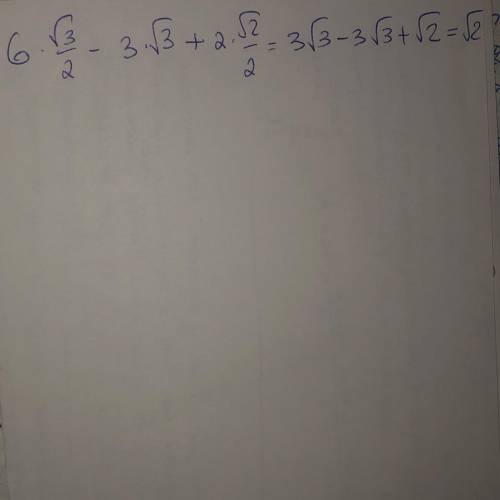 6 · √3/2 - 3 · √3 + 2 · √2/2 = 3√3 - 3√3 + √2 = √2